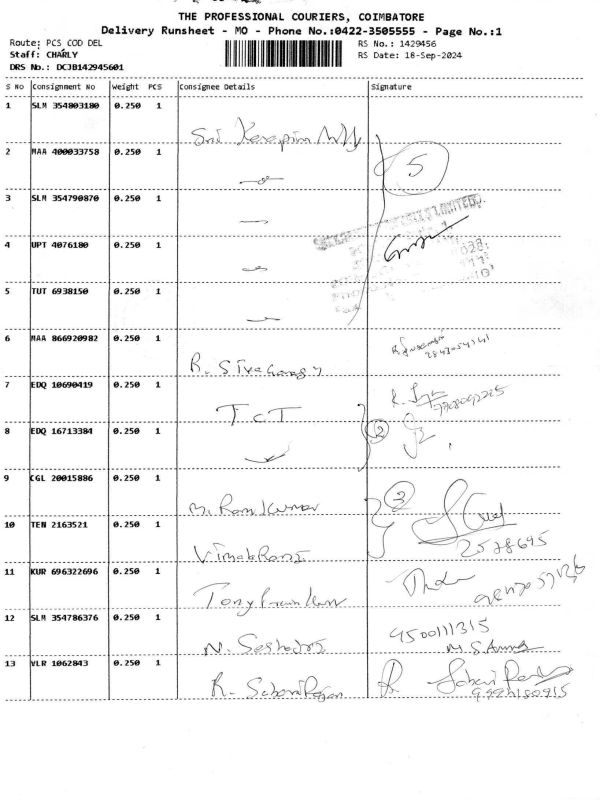 THE PROFESSIONAL COURIERS, COIMBATORE
Delivery Runsheet - MO - Phone No.:0422-3505555 - Page No.:1
Route: PCS COD DEL RS No.: 1429456
Staff: CHARLY RS Date: 18-Sep-2024
DRS No.: DCJB142945601
S No Consignment No Weight PCS Consignee Details Signature
1 SLM 354803180 0.250 1
Sri
2 MAA 400033758 0.250 1
5
3 SLM 354790870 0.250 1
LIMITED
4 UPT 4076180 0.250 1
5 TUT 6938150 0.250 1
6 MAA 866920982 0.250 1
R.
7 EDQ 10690419 0.250 1
TCT
8 EDQ 16713384 0.250 1
2
9 CGL 20015886 0.250 1
M. Ramkumar 3
10 TEN 2163521 0.250 1
2528695
11 KUR 696322696 0.250 1
Tony
12 SLM 354786376 0.250 1
9500111315
N.
13 VLR 1062843 0.250 1
R.